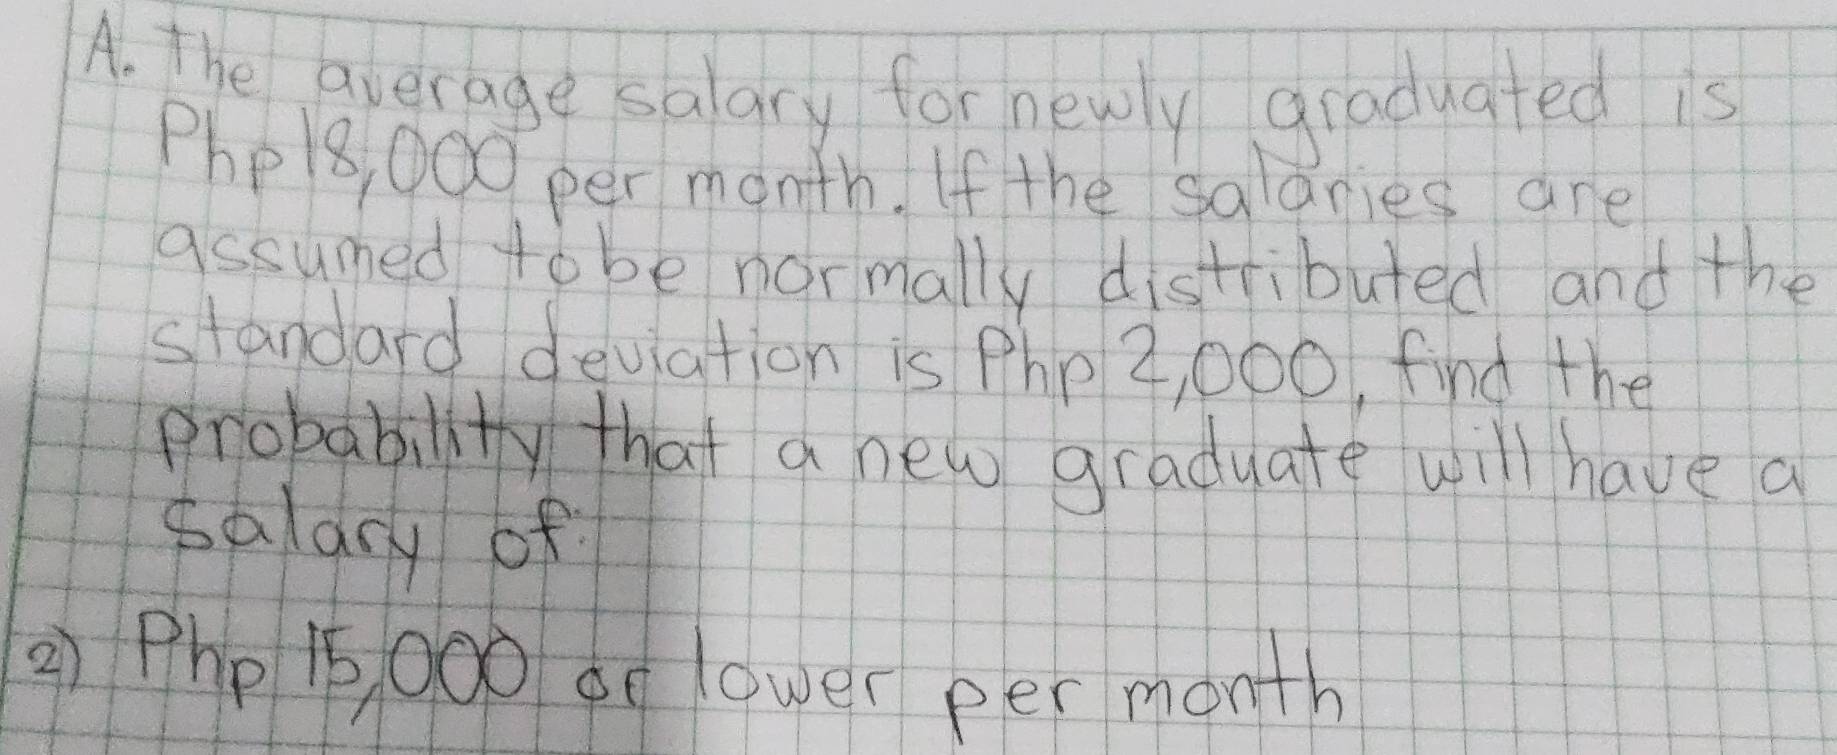 A. The average salary for newly graduated is
Php 18,000 per month. If the salaries are
assumed to be normally distributed and the
standard deviation is Php 2,000, find the
probability that a new graduate will have a
salary of:
2) Php 15,000 or lower per month